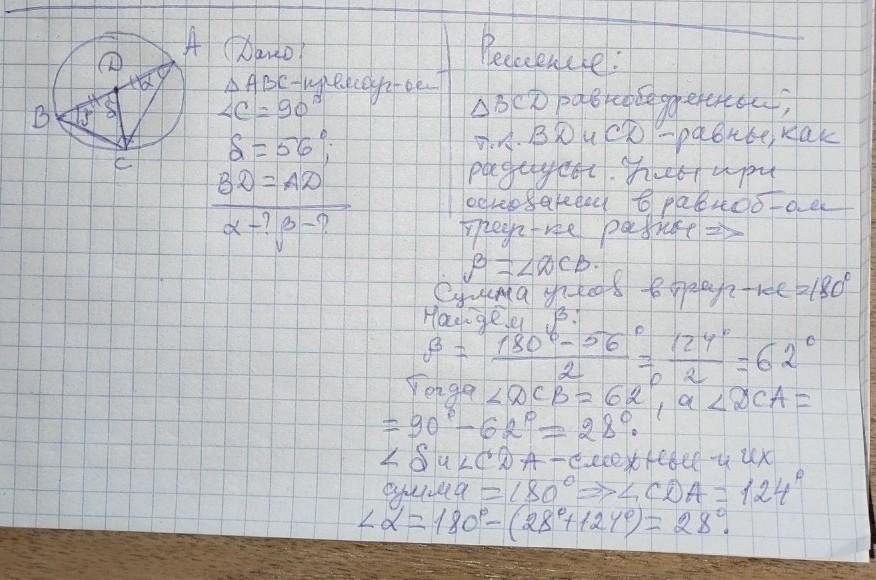 A
D
α
B
β
δ
C
Дано:
△ABC-прямоуг-ый
∠C=90°
δ=56°;
BD=AD
α-? β-?
Решение:
△BCD равнобедренный,
т.к. BD и CD-равны, как
радиусы. Углы при
основании в равноб-ом
треуг-ке равны ⇒
β=∠DCB.
Сумма углов в треуг-ке=180°
Найдём β:
β = (180°-56°)/2 = 124°/2 = 62°
Тогда ∠DCB=62°, а ∠DCA=
=90°-62°=28°.
∠δ и ∠CDA-смежные и их
сумма=180°⇒∠CDA=124°
∠α=180°-(28°+124°)=28°.